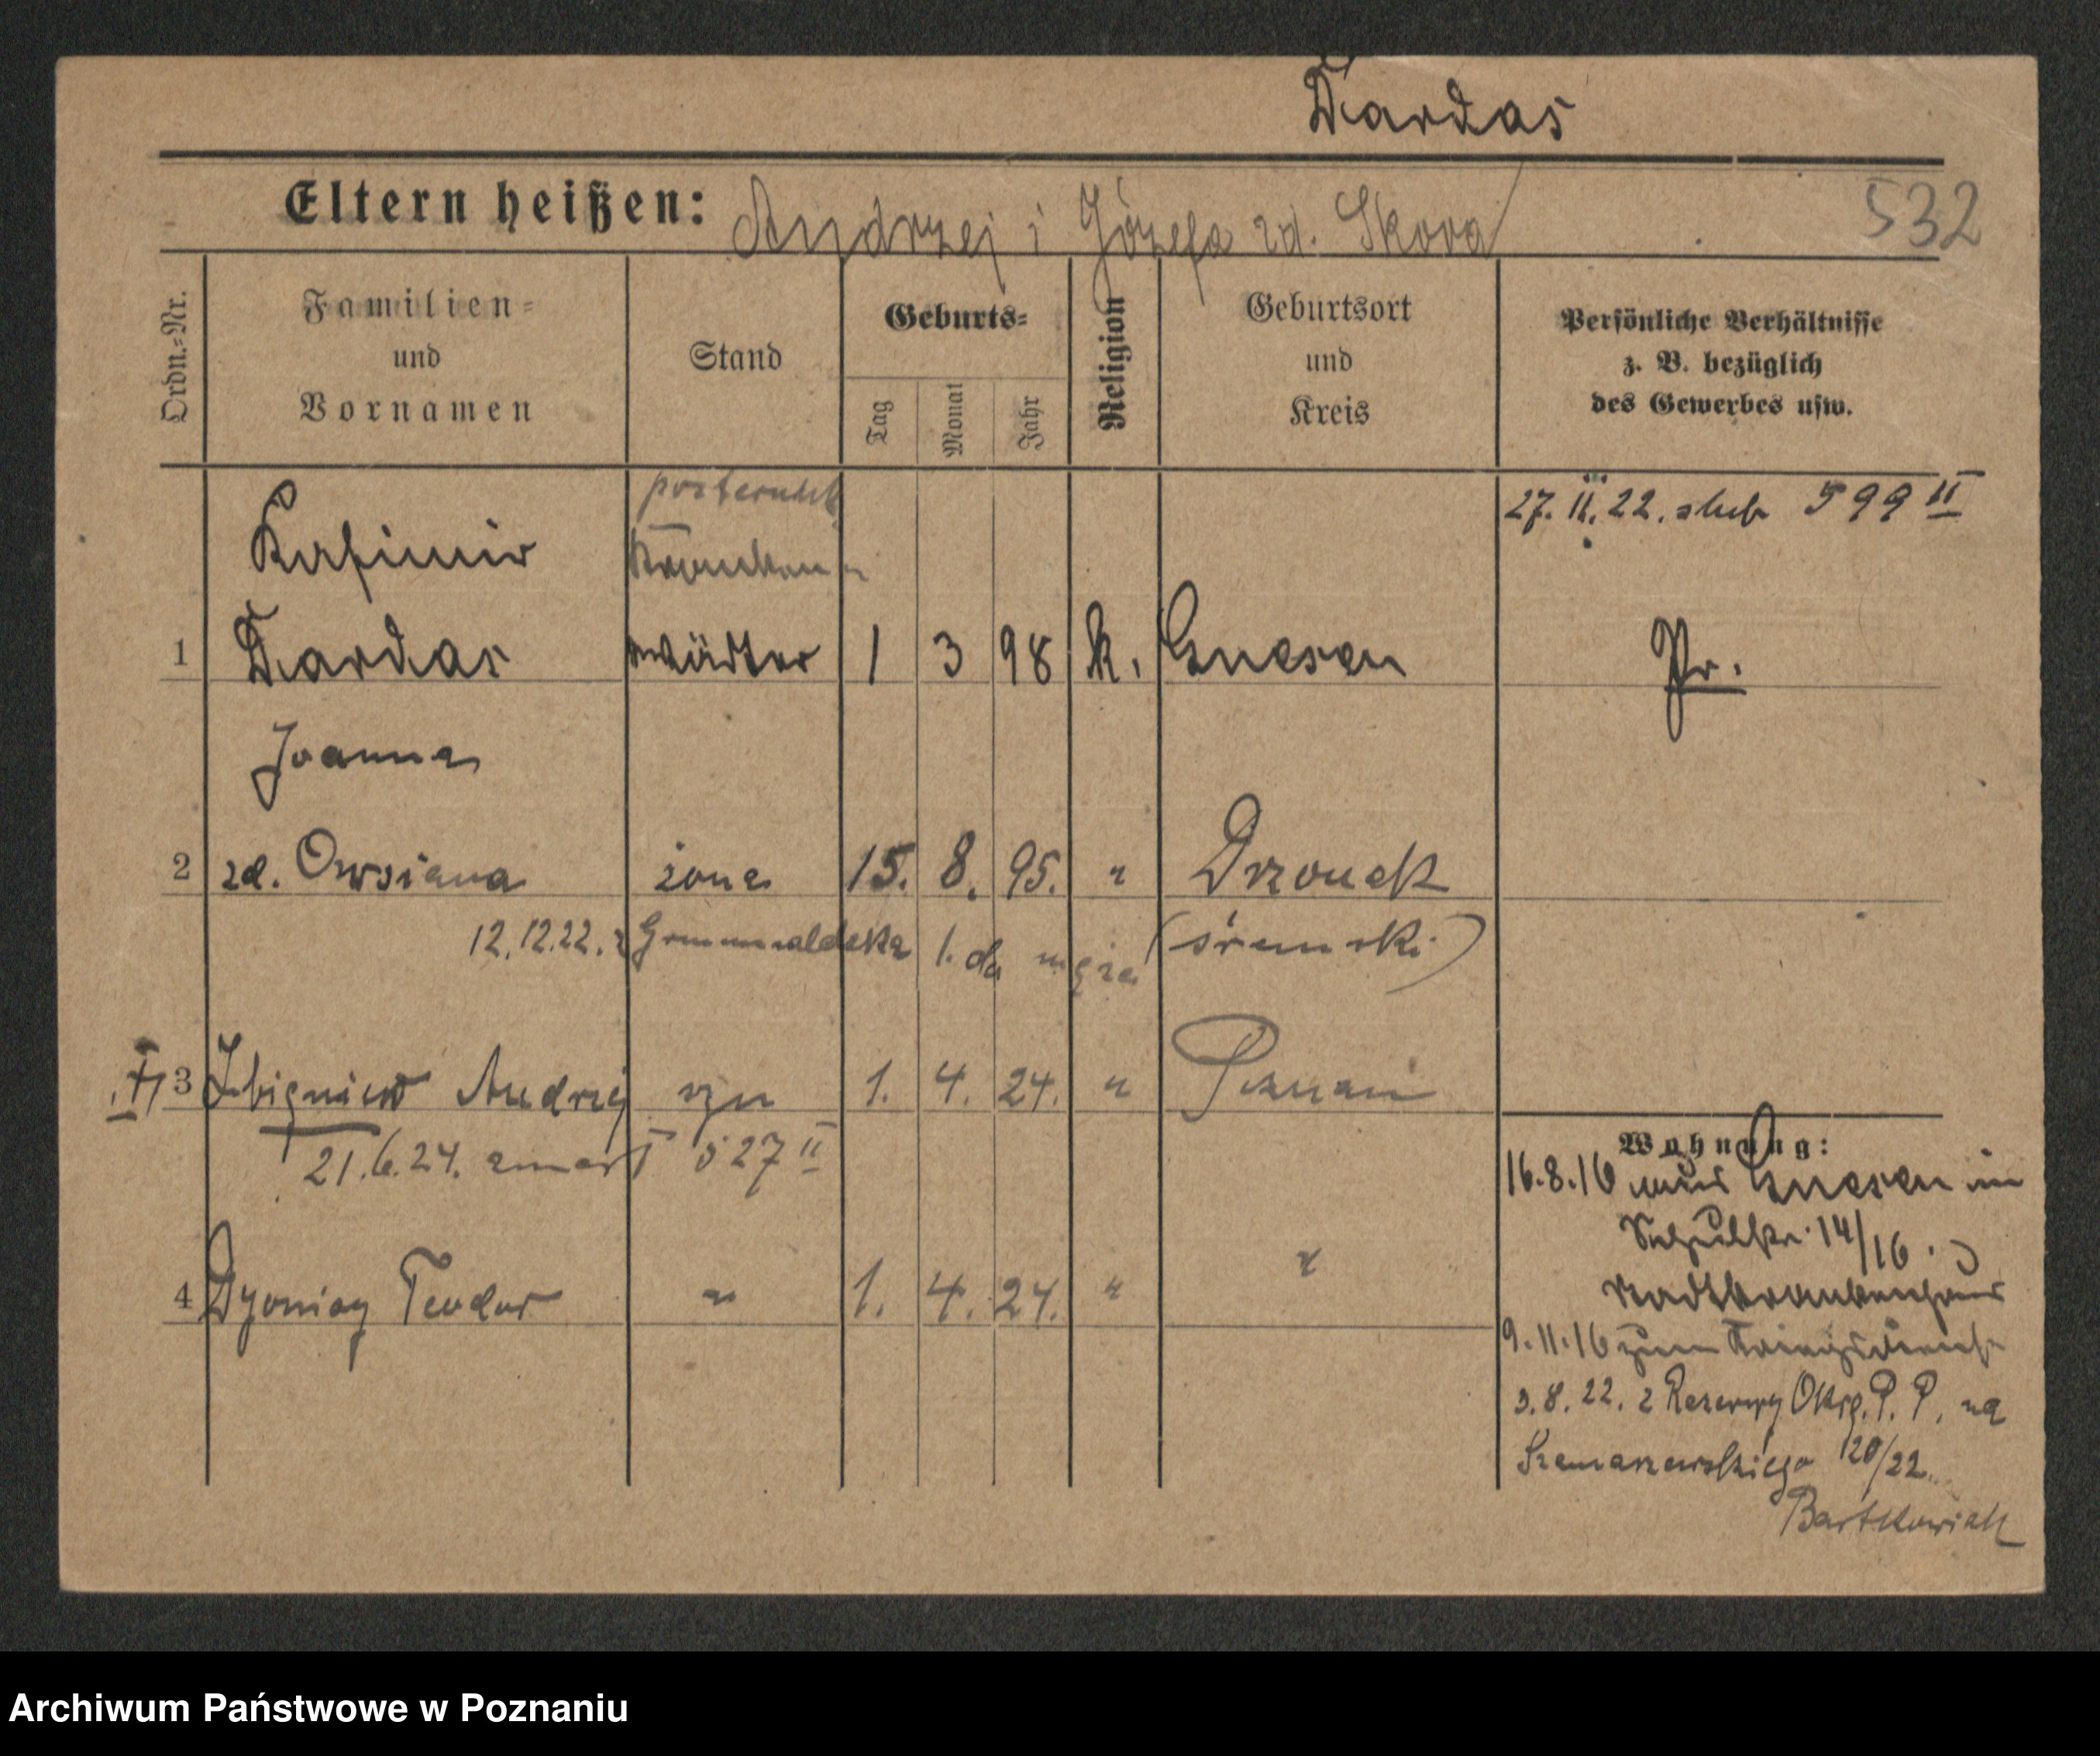 Dardas
Eltern heißen: Andrzej i Józefa zd. Skora
532
Ordn.-Nr.
Familien- und Vornamen
Stand
Geburts-
Tag
Monat
Jahr
Religion
Geburtsort und Kreis
Persönliche Verhältnisse z. B. bezüglich des Gewerbes usw.
27. II. 22. slub 599 II
Kasimir
Kranken
1 Dardas wärter 1 3 98 k. Gnesen Pr.
Joanna
2 zd. Owsiana żona 15. 8. 95. " Drzonek
12.12.22. z Grunwaldzka 1. do męża (śremski)
3 Zbigniew Andrzej syn 1. 4. 24. " Poznań
21.6.24. zmarł 527 II
4 Dyonizy Teodor " 1. 4. 24. " "
Wohnung:
16.8.16 aus Gnesen in
14/16.
Stadtkrankenhaus
9.11.16 zum Kriegsdienst
3.8.22. z Rezerwy Okrę. P. P. na
Szamarzewskiego 20/22.
Bartkowiak
Archiwum Państwowe w Poznaniu